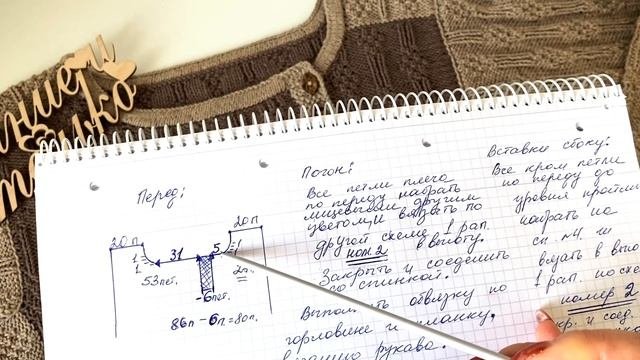 Перед:
20п
20п
31
5
1
1
1
1
53пет.
2п.
-6пет.
86п - 6п = 80п.
Погон:
Все петли плеча
по переду набрать
лицевыми другим
цветом и вязать по
другой схеме 1 рап.
ном. 2
в высоту.
Закрыть и соединить
со спинкой.
Выполн. обвязку по
горловине и планку.
рукава.
Вставки сбоку:
Все кром. петли
по переду до
уровня проймы
набрать на
сп. №4. и
вязать в
1 рап. по схе
номер 2
и соед.